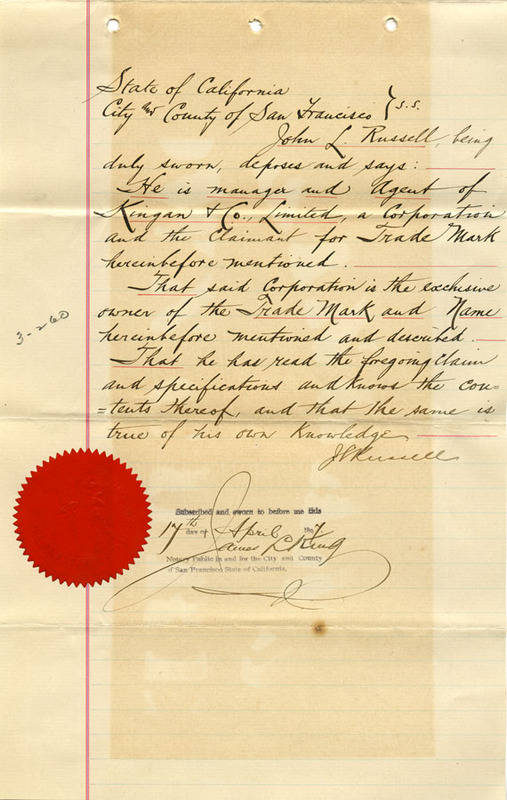 State of California
City and County of San Francisco } S.S.
John L. Russell, being
duly sworn, deposes and says:
He is manager and Agent of
Kingan & Co., Limited, a Corporation
and the Claimant for Trade Mark
hereinbefore mentioned.
That said Corporation is the exclusive
owner of the Trade Mark and Name
hereinbefore mentioned and described.
That he has read the foregoing Claim
and specifications and knows the con=
=tents thereof, and that the same is
true of his own Knowledge
J L Russell
3-260
Subscribed and sworn to before me this
17th day of April 189
James L. King
Notary Public in and for the City and County
of San Francisco State of California.